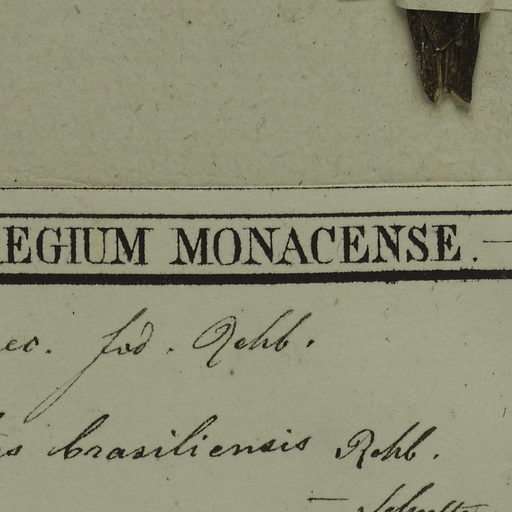 REGIUM MONACENSE.
ec. fod. Rehb.
brasiliensis Rehb.